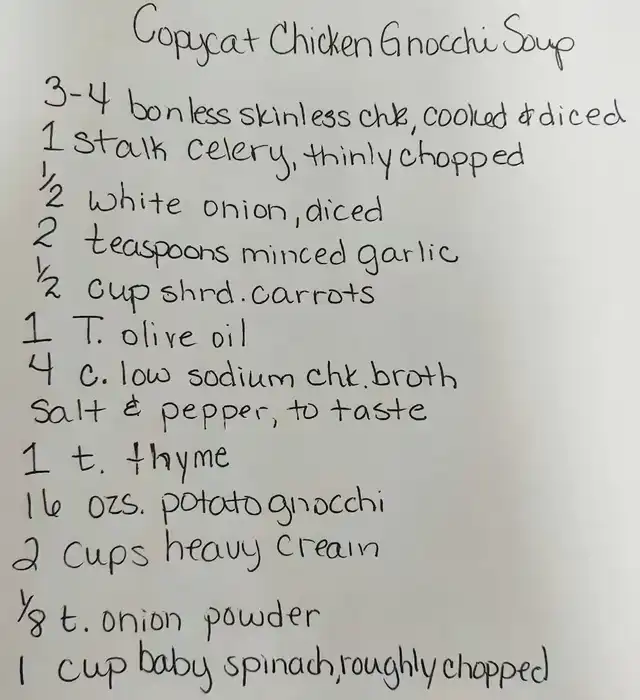 Copycat Chicken Gnocchi Soup
3-4 bonless skinless chk, cooked & diced
1 stalk celery, thinly chopped
1/2 white onion, diced
2 teaspoons minced garlic
1/2 cup shrd. carrots
1 T. olive oil
4 c. low sodium chk. broth
Salt & pepper, to taste
1 t. thyme
16 ozs. potato gnocchi
2 cups heavy cream
1/8 t. onion powder
1 cup baby spinach, roughly chopped